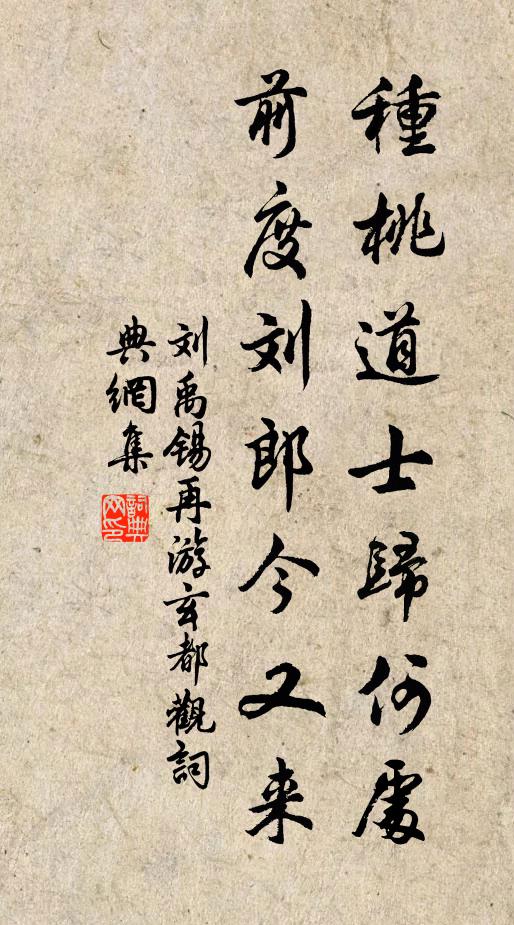 種桃道士歸何處
前度刘郎今又来
刘禹锡再游玄都觀詞
典網集
詞典网印